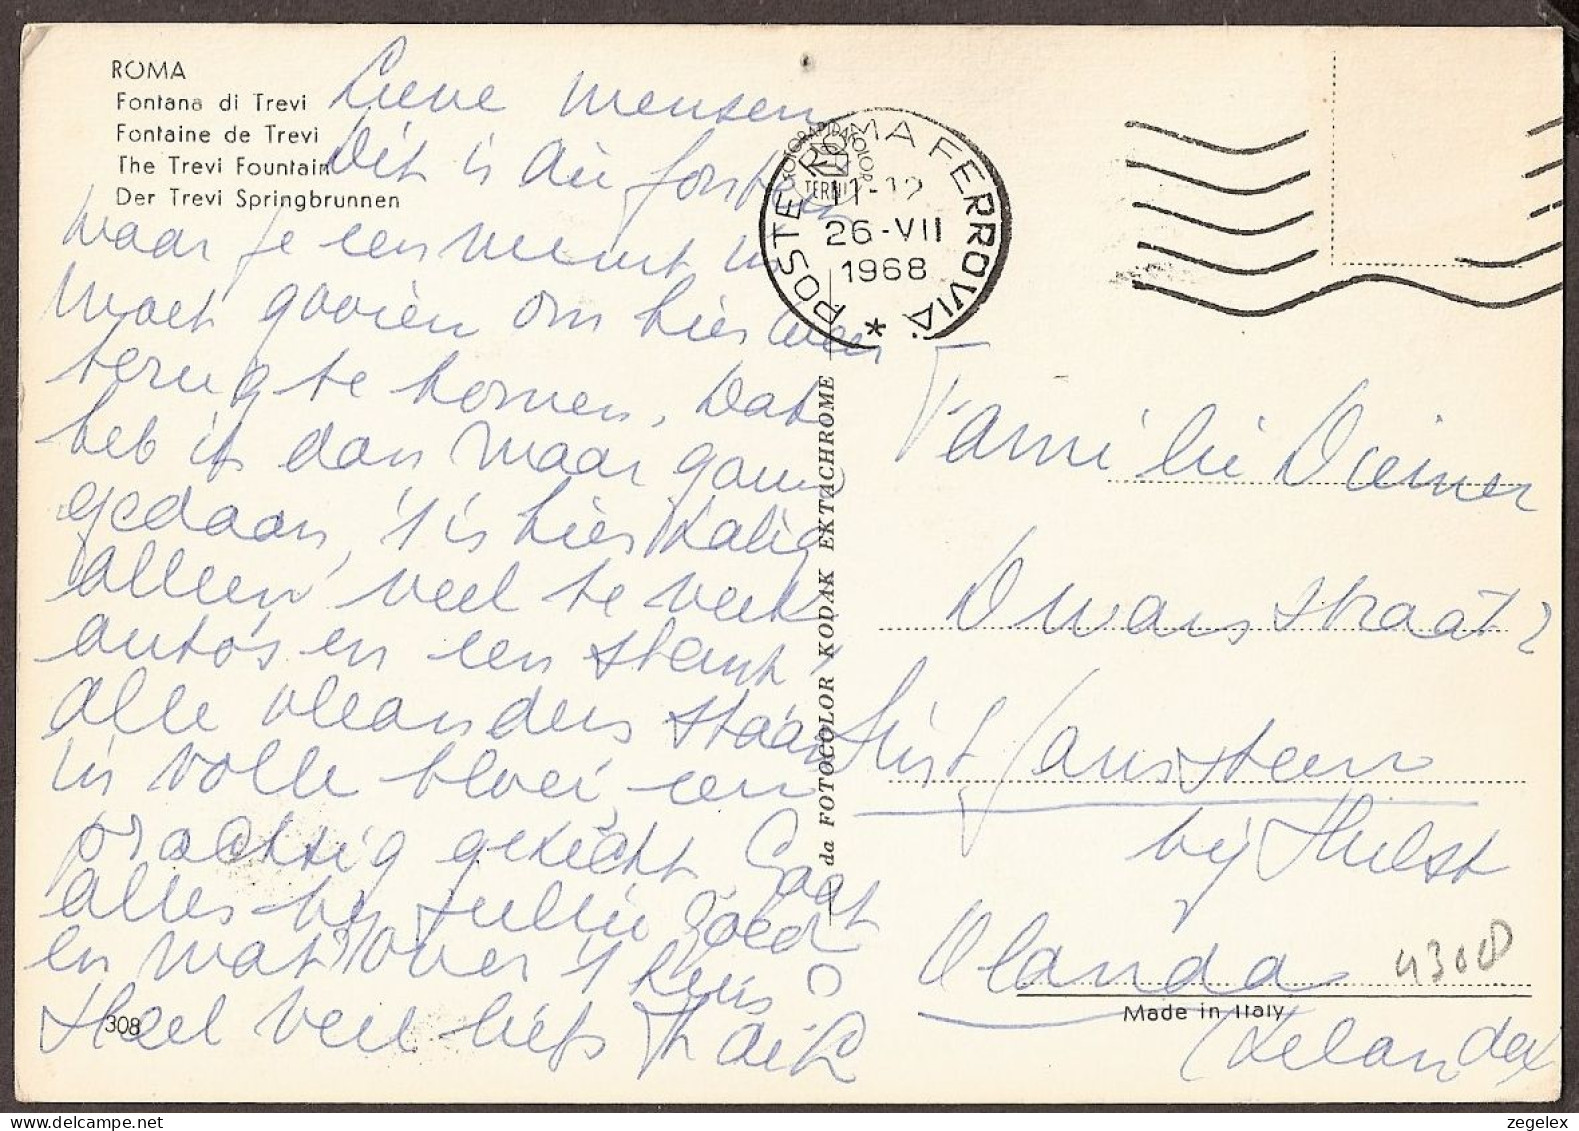 ROMA
Fontana di Trevi
Fontaine de Trevi
The Trevi Fountain
Der Trevi Springbrunnen
Lieve mensen
Dit is die fontein
waar je een munt in
moet gooien om hier weer
terug te komen. Dat
heb ik dan maar gauw
gedaan, 't is hier zalig
alleen veel te veel
auto's en een stank,
alle oleanders staan
in volle bloei, een
prachtig gezicht. Gaat
alles bij jullie goed
en wat over 't huis?
Heel veel liefs
308
POSTE ROMA FERROVIA *
11-12
26-VII
1968
FOTORAPIDACOLOR
TERNI
da FOTOCOLOR KODAK EKTACHROME
Familie
Dwarsstraat 2
Sint Jansteen
bij Hulst
Olanda
(Zelanda)
4300
Made in Italy
zegelex